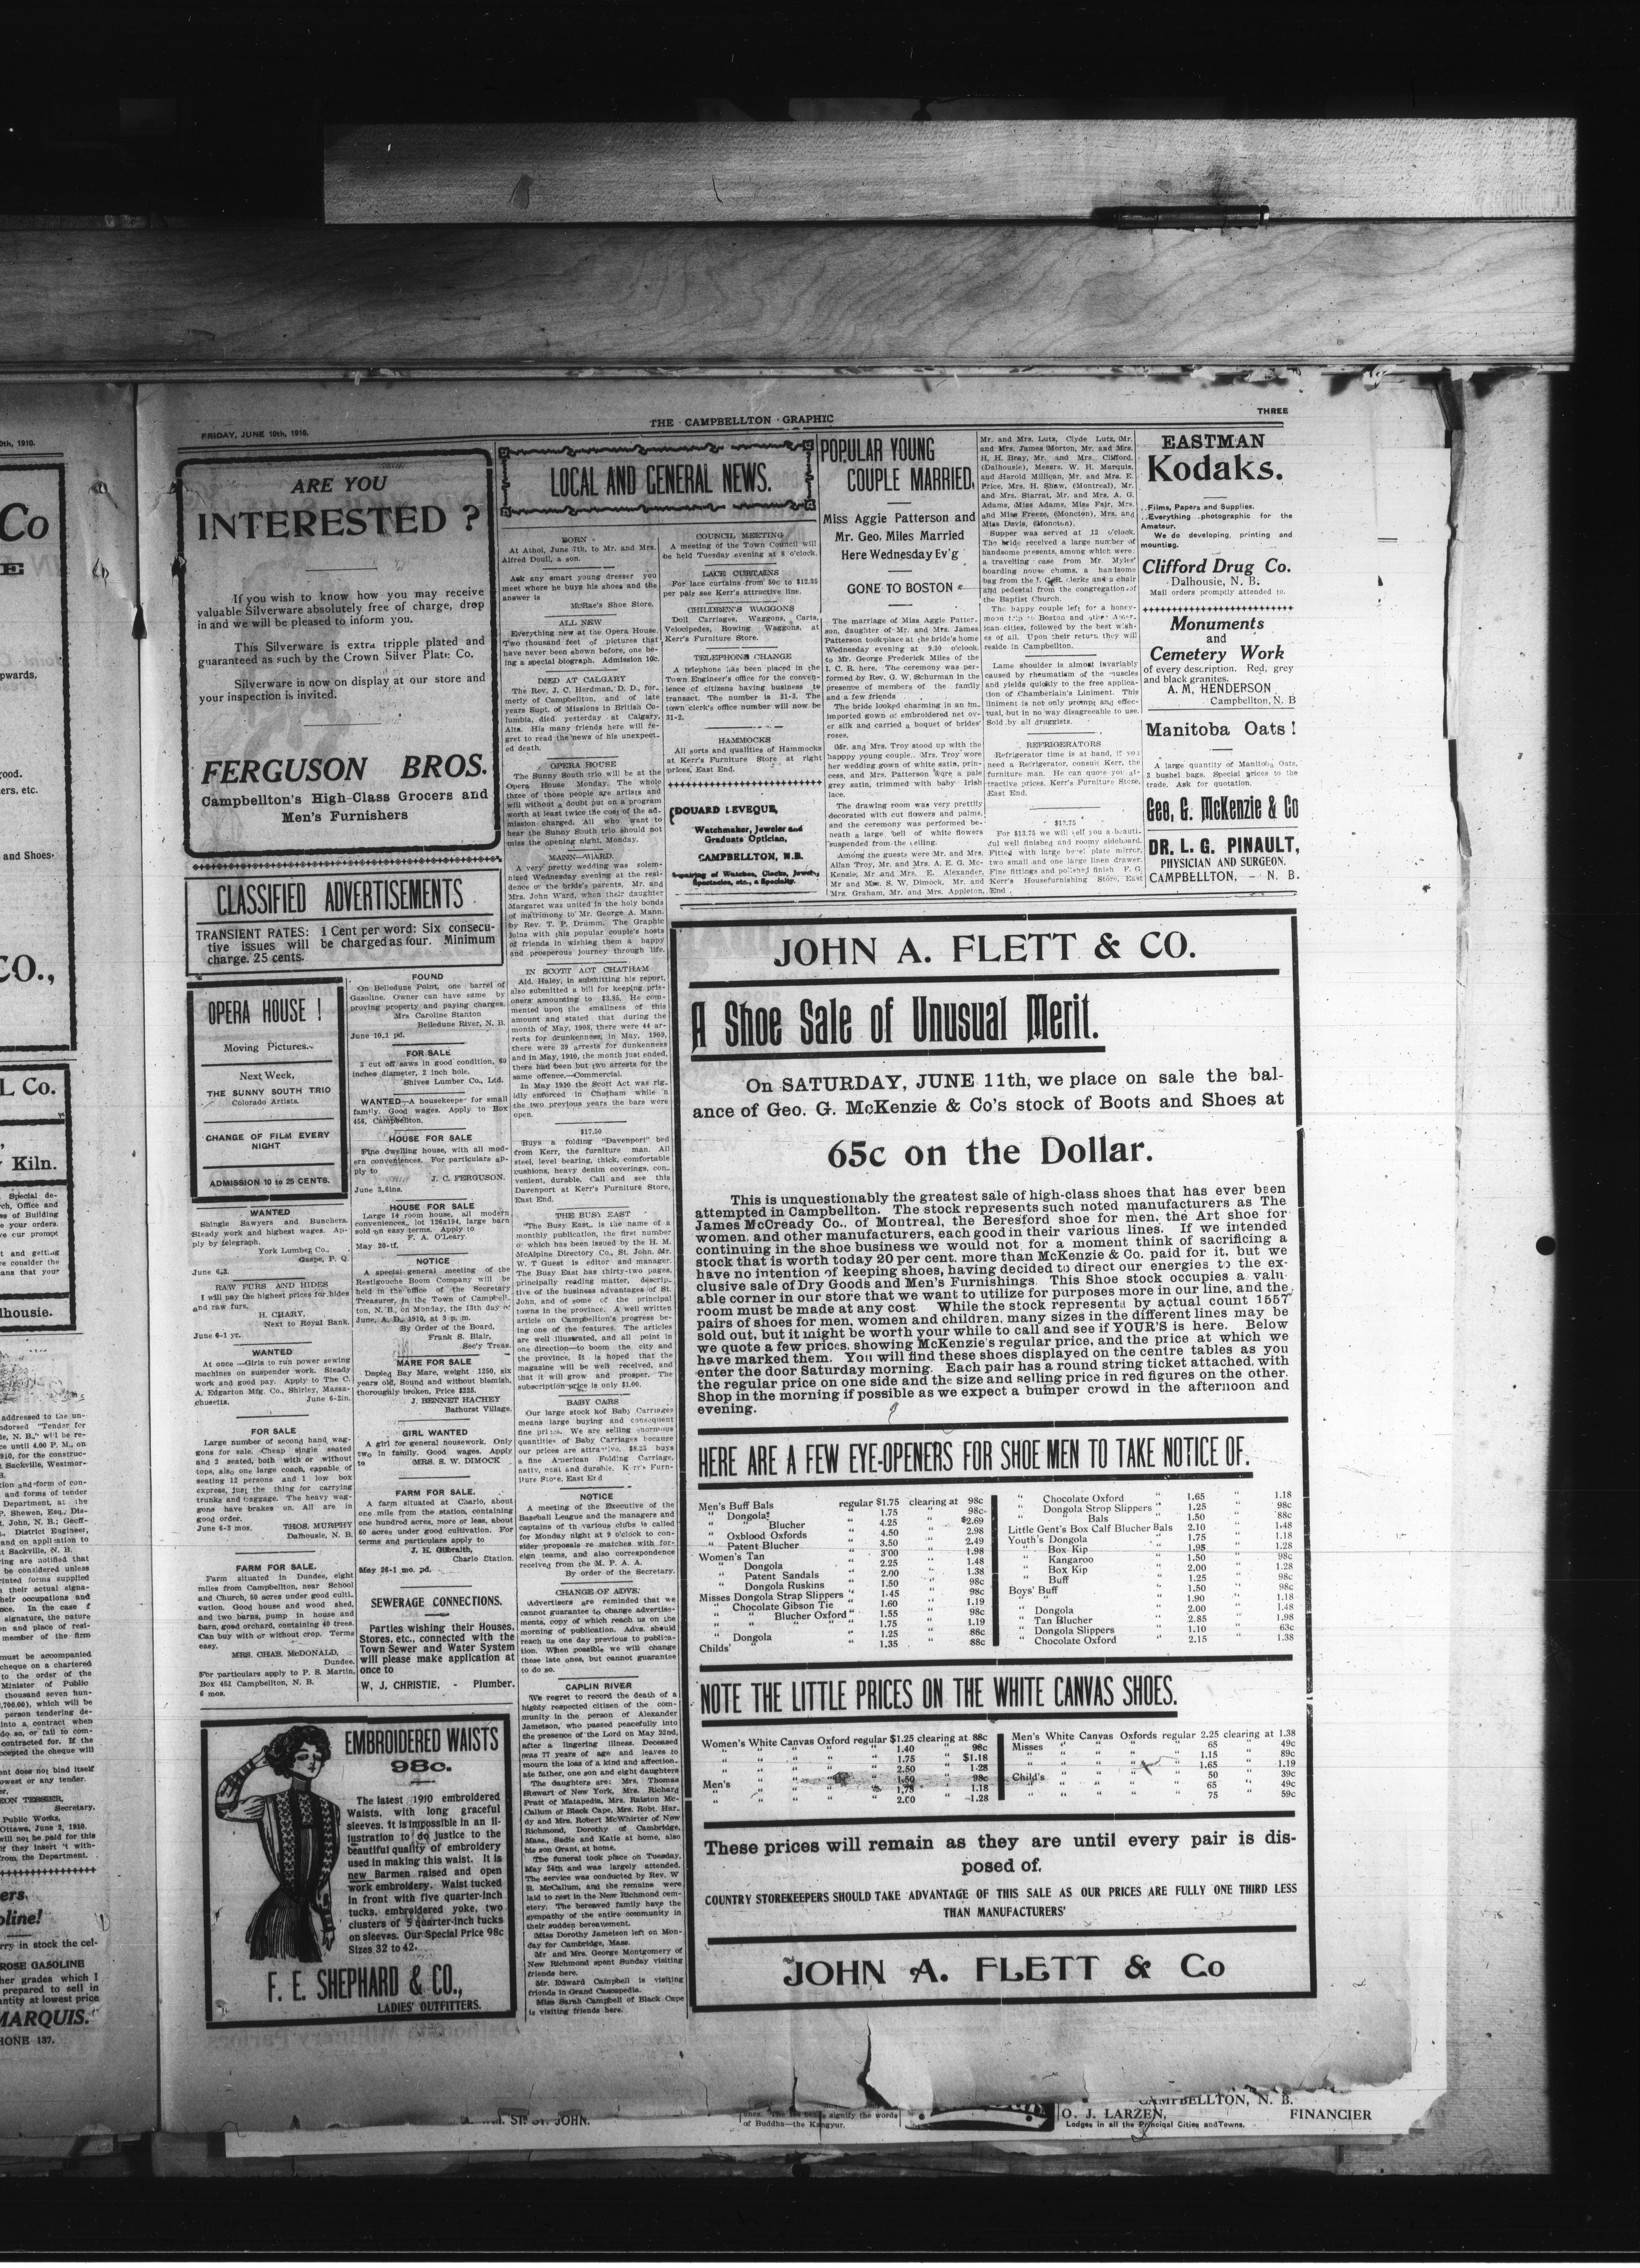 FRIDAY, JUNE 10th, 1910.
THE CAMPBELLTON GRAPHIC
THREE
ARE YOU
INTERESTED ?
If you wish to know how you may receive
valuable Silverware absolutely free of charge, drop
in and we will be pleased to inform you.
This Silverware is extra tripple plated and
guaranteed as such by the Crown Silver Plate Co.
Silverware is now on display at our store and
your inspection is invited.
FERGUSON BROS.
Campbellton's High-Class Grocers and
Men's Furnishers
CLASSIFIED ADVERTISEMENTS
TRANSIENT RATES: 1 Cent per word: Six consecu-
tive issues will be charged as four. Minimum
charge. 25 cents.
OPERA HOUSE !
Moving Pictures.
Next Week,
THE SUNNY SOUTH TRIO
Colorado Artists.
CHANGE OF FILM EVERY
NIGHT
ADMISSION 10 to 25 CENTS.
WANTED
Shingle Sawyers and Bunchers.
Steady work and highest wages. Ap-
ply by telegraph.
York Lumber Co.,
Gaspe, P. Q.
June 6-3.
RAW FURS AND HIDES
I will pay the highest prices for hides
and raw furs.
H. CHARY,
Next to Royal Bank.
June 6-1 yr.
WANTED
At once—Girls to run power sewing
machines on suspender work. Steady
work and good pay. Apply to The C.
A. Edgarton Mfg. Co., Shirley, Massa-
chusetts. June 6-2in.
FOR SALE
Large number of second hand wag-
gons for sale. Cheap single seated
and 2 seated, both with or without
tops, also one large coach, capable of
seating 12 persons and 1 low box
express, just the thing for carrying
trunks and baggage. The heavy wag-
gons have brakes on. All are in
good order.
June 6-3 mos. THOS. MURPHY
Dalhousie, N. B.
FARM FOR SALE.
Farm situated in Dundee, eight
miles from Campbellton, near School
and Church, 50 acres under good culti-
vation. Good house and wood shed,
and two barns, pump in house and
barn, good orchard, containing 40 trees.
Can buy with or without crop. Terms
easy.
MRS. CHAS. McDONALD,
Dundee.
For particulars apply to P. S. Martin,
Box 451 Campbellton, N. B.
6 mos.
FOUND
On Belledune Point, one barrel of
Gasoline. Owner can have same by
proving property and paying charges.
Mrs Caroline Stanton
Belledune River, N. B.
June 10.1 pd.
FOR SALE
3 cut off saws in good condition, 60
inches diameter, 2 inch hole.
Shives Lumber Co., Ltd.
WANTED—A housekeeper for small
family. Good wages. Apply to Box
456, Campbellton.
HOUSE FOR SALE
Fine dwelling house, with all mod-
ern conveniences. For particulars ap-
ply to
J. C. FERGUSON.
June 3.6ins.
HOUSE FOR SALE
Large 14 room house, all modern
conveniences, lot 126x194, large barn
sold on easy terms. Apply to
F. A. O'Leary.
May 20-tf.
NOTICE
A special general meeting of the
Restigouche Boom Company will be
held in the office of the Secretary
Treasurer, in the Town of Campbell-
ton, N. B., on Monday, the 13th day of
June, A. D., 1910, at 3 p. m.
By Order of the Board,
Frank S. Blair,
Sec'y Treas.
MARE FOR SALE
Dapled Bay Mare, weight 1250, six
years old, Sound and without blemish,
thoroughly broken, Price $225.
J. BENNET HACHEY
Bathurst Village.
GIRL WANTED
A girl for general housework. Only
two in family. Good wages. Apply
to MRS. S. W. DIMOCK
FARM FOR SALE.
A farm situated at Charlo, about
one mile from the station, containing
one hundred acres, more or less, about
60 acres under good cultivation. For
terms and particulars apply to
J. H. Gilbraith,
Charlo Station.
May 26-1 mo. pd.
SEWERAGE CONNECTIONS.
Parties wishing their Houses,
Stores, etc., connected with the
Town Sewer and Water System
will please make application at
once to
W. J. CHRISTIE, - Plumber.
EMBROIDERED WAISTS
98c.
The latest 1910 embroidered
Waists, with long graceful
sleeves. It is impossible in an il-
lustration to do justice to the
beautiful quality of embroidery
used in making this waist. It is
new Barmen raised and open
work embroidery. Waist tucked
in front with five quarter-inch
tucks, embroidered yoke, two
clusters of 5 quarter-inch tucks
on sleeves. Our Special Price 98c
Sizes 32 to 42.
F. E. SHEPHARD & CO.,
LADIES' OUTFITTERS.
LOCAL AND GENERAL NEWS.
BORN
At Athol, June 7th, to Mr. and Mrs.
Alfred Doull, a son.
Ask any smart young dresser you
meet where he buys his shoes and the
answer is
McRae's Shoe Store.
ALL NEW
Everything new at the Opera House.
Two thousand feet of pictures that
have never been shown before, one be-
ing a special biograph. Admission 10c.
DIED AT CALGARY
The Rev. J. C. Herdman, D. D., for-
merly of Campbellton, and of late
years Supt. of Missions in British Co-
lumbia, died yesterday at Calgary,
Alta. His many friends here will re-
gret to read the news of his unexpect-
ed death.
OPERA HOUSE
The Sunny South trio will be at the
Opera House Monday. The whole
three of those people are artists and
will without a doubt put on a program
worth at least twice the cost of the ad-
mission charged. All who want to
hear the Sunny South trio should not
miss the opening night, Monday.
MANN—WARD.
A very pretty wedding was solem-
nized Wednesday evening at the resi-
dence of the bride's parents, Mr. and
Mrs. John Ward, when their daughter
Margaret was united in the holy bonds
of matrimony to Mr. George A. Mann,
by Rev. T. P. Drumm. The Graphic
joins with this popular couple's hosts
of friends in wishing them a happy
and prosperous journey through life.
IN SCOTT ACT CHATHAM
Ald. Haley, in submitting his report,
also submitted a bill for keeping pris-
oners amounting to $3.85. He com-
mented upon the smallness of this
amount and stated that during the
month of May, 1908, there were 44 ar-
rests for drunkenness, in May, 1909,
there were 39 arrests for dunkenness
and in May, 1910, the month just ended,
there had been but two arrests for the
same offence.—Commercial.
In May 1910 the Scott Act was rig-
idly enforced in Chatham while in
the two previous years the bars were
open.
$17.50
Buys a folding "Davenport" bed
from Kerr, the furniture man. All
steel, level bearing, thick, comfortable
cushions, heavy denim coverings, con-
venient, durable. Call and see this
Davenport at Kerr's Furniture Store,
East End.
THE BUSY EAST
"The Busy East, is the name of a
monthly publication, the first number
of which has been issued by the H. M.
McAlpine Directory Co., St. John, Mr.
W. T Guest is editor and manager.
The Busy East has thirty-two pages,
principally reading matter, descrip-
tive of the business advantages of St.
John, and of some of the principal
towns in the province. A well written
article on Campbellton's progress be-
ing one of the features. The articles
are well illustrated, and all point in
one direction—to boom the city and
the province. It is hoped that the
magazine will be well received, and
that it will grow and prosper. The
subscription price is only $1.00.
BABY CARS
Our large stock kof Baby Carriages
means large buying and consequent
fine prices. We are selling enormous
quantities of Baby Carriages because
our prices are attractive. $8.25 buys
a fine American Folding Carriage,
natty, neat and durable. Kerr's Furn-
iture Store, East End
NOTICE
A meeting of the Executive of the
Baseball League and the managers and
captains of the various clubs is called
for Monday night at 9 o'clock to con-
sider proposals re matches with for-
eign teams, and also correspondence
received from the M. P. A. A.
By order of the Secretary.
CHANGE OF ADVS.
Advertisers are reminded that we
cannot guarantee to change advertise-
ments, copy of which reach us on the
morning of publication. Advs. should
reach us one day previous to publica-
tion. When possible we will change
these late ones, but cannot guarantee
to do so.
CAPLIN RIVER
We regret to record the death of a
highly respected citizen of the com-
munity in the person of Alexander
Jameison, who passed peacefully into
the presence of the Lord on May 22nd,
after a lingering illness. Deceased
was 77 years of age and leaves to
mourn the loss of a kind and affection-
ate father, one son and eight daughters
The daughters are: Mrs. Thomas
Stewart of New York, Mrs. Richard
Pratt of Matapedia, Mrs. Ralston Mc-
Callum of Black Cape, Mrs. Robt. Har-
dy and Mrs. Robert McWhirter of New
Richmond, Dorothy of Cambridge,
Mass., Sadie and Katie at home, also
his son Grant, at home.
The funeral took place on Tuesday,
May 24th and was largely attended.
The service was conducted by Rev. W
B. McCallum, and the remains were
laid to rest in the New Richmond cem-
etery. The bereaved family have the
sympathy of the entire community in
their sudden bereavement.
Miss Dorothy Jameison left on Mon-
day for Cambridge, Mass.
Mr and Mrs. George Montgomery of
New Richmond spent Sunday visiting
friends here.
Mr. Edward Campbell is visiting
friends in Grand Cascapedia.
Miss Sarah Campbell of Black Cape
is visiting friends here.
COUNCIL MEETING
A meeting of the Town Council will
be held Tuesday evening at 8 o'clock.
LACE CURTAINS
For lace curtains from 50c to $12.35
per pair see Kerr's attractive line.
CHILDREN'S WAGGONS
Doll Carriages, Waggons, Carts,
Velocipedes, Rowing Waggons, at
Kerr's Furniture Store.
TELEPHONE CHANGE
A telephone has been placed in the
Town Engineer's office for the conven-
ience of citizens having business to
transact. The number is 31-3. The
town clerk's office number will now be
31-2.
HAMMOCKS
All sorts and qualities of Hammocks
at Kerr's Furniture Store at right
prices, East End.
EDOUARD LEVEQUE,
Watchmaker, Jeweler and
Graduate Optician,
CAMPBELLTON, N.B.
Repairing of Watches, Clocks, Jewelry
Spectacles, etc., a Specialty.
POPULAR YOUNG
COUPLE MARRIED.
Miss Aggie Patterson and
Mr. Geo. Miles Married
Here Wednesday Ev'g
GONE TO BOSTON
The marriage of Miss Aggie Patter-
son, daughter of Mr. and Mrs. James
Patterson took place at the bride's home
Wednesday evening at 9.30 o'clock,
to Mr. George Frederick Miles of the
I. C. R. here. The ceremony was per-
formed by Rev. G. W. Schurman in the
presence of members of the family
and a few friends
The bride looked charming in an im-
imported gown of embroidered net ov-
er silk and carried a boquet of brides'
roses.
Mr. and Mrs. Troy stood up with the
happpy young couple. Mrs. Troy wore
her wedding gown of white satin, prin-
cess, and Mrs. Patterson wore a pale
grey satin, trimmed with baby Irish
lace.
The drawing room was very prettily
decorated with cut flowers and palms,
and the ceremony was performed be-
neath a large bell of white flowers
suspended from the ceiling.
Among the guests were Mr. and Mrs.
Allan Troy, Mr. and Mrs. A. E. G. Mc-
Kenzie, Mr and Mrs. E. Alexander,
Mr and Mrs. S. W. Dimock, Mr. and
Mrs. Graham, Mr. and Mrs. Appleton,
Mr. and Mrs. Lutz, Clyde Lutz, Mr.
and Mrs. James Morton, Mr. and Mrs.
H. H. Bray, Mr. and Mrs. Clifford,
(Dalhousie), Messrs. W. H. Marquis,
and Harold Millican, Mr. and Mrs. E.
Price, Mrs. H. Shaw, (Montreal), Mr.
and Mrs. Starrat, Mr. and Mrs. A. G.
Adams, Miss Adams, Miss Fair, Mrs.
and Miss Freeze, (Moncton), Mrs. and
Miss Davis, (Moncton).
Supper was served at 12 o'clock.
The bride received a large number of
handsome presents, among which were
a travelling case from Mr. Myles'
boarding house chums, a handsome
bag from the I. C. R. clerks and a chair
and pedestal from the congregation of
the Baptist Church.
The happy couple left for a honey-
moon trip to Boston and other Amer-
ican cities, followed by the best wish-
es of all. Upon their return they will
reside in Campbellton.
Lame shoulder is almost invariably
caused by rheumatism of the muscles
and yields quickly to the free applica-
tion of Chamberlain's Liniment. This
liniment is not only prompt and effec-
tual, but in no way disagreeable to use.
Sold by all druggists.
REFRIGERATORS
Refrigerator time is at hand, if you
need a Refrigerator, consult Kerr, the
furniture man. He can quote you at-
tractive prices. Kerr's Furniture Store,
East End.
$13.75
For $13.75 we will sell you a beauti-
ful well finished and roomy sideboard.
Fitted with large bevel plate mirror,
two small and one large linen drawer.
Fine fittings and polished finish F. G.
Kerr's Housefurnishing Store, East
End
EASTMAN
Kodaks.
Films, Papers and Supplies.
Everything photographic for the
Amateur.
We do developing, printing and
mounting.
Clifford Drug Co.
Dalhousie, N. B.
Mail orders promptly attended to.
Monuments
and
Cemetery Work
of every description. Red, grey
and black granites.
A. M. HENDERSON
Campbellton, N. B
Manitoba Oats !
A large quantity of Manitoba Oats,
3 bushel bags. Special prices to the
trade. Ask for quotation.
Geo. G. McKenzie & Co
DR. L. G. PINAULT,
PHYSICIAN AND SURGEON.
CAMPBELLTON, — N. B.
JOHN A. FLETT & CO.
A Shoe Sale of Unusual Merit.
On SATURDAY, JUNE 11th, we place on sale the bal-
ance of Geo. G. McKenzie & Co's stock of Boots and Shoes at
65c on the Dollar.
This is unquestionably the greatest sale of high-class shoes that has ever been
attempted in Campbellton. The stock represents such noted manufacturers as The
James McCready Co., of Montreal, the Beresford shoe for men, the Art shoe for
women, and other manufacturers, each good in their various lines. If we intended
continuing in the shoe business we would not for a moment think of sacrificing a
stock that is worth today 20 per cent. more than McKenzie & Co. paid for it, but we
have no intention of keeping shoes, having decided to direct our energies to the ex-
clusive sale of Dry Goods and Men's Furnishings. This Shoe stock occupies a valu-
able corner in our store that we want to utilize for purposes more in our line, and the
room must be made at any cost While the stock represents by actual count 1557
pairs of shoes for men, women and children, many sizes in the different lines may be
sold out, but it might be worth your while to call and see if YOUR'S is here. Below
we quote a few prices, showing McKenzie's regular price, and the price at which we
have marked them. You will find these shoes displayed on the centre tables as you
enter the door Saturday morning. Each pair has a round string ticket attached, with
the regular price on one side and the size and selling price in red figures on the other.
Shop in the morning if possible as we expect a bumper crowd in the afternoon and
evening.
HERE ARE A FEW EYE-OPENERS FOR SHOE MEN TO TAKE NOTICE OF.
Men's Buff Bals regular $1.75 clearing at 98c
" Dongola " 1.75 " 98c
" " Blucher " 4.25 " $2.69
" Oxblood Oxfords 4.50 " 2.98
" Patent Blucher 3.50 " 2.49
Women's Tan 3.00 " 1.98
" Dongola 2.25 " 1.48
" Patent Sandals 2.00 " 1.38
" Dongola Ruskins 1.50 " 98c
Misses Dongola Strap Slippers " 1.45 " 98c
" Chocolate Gibson Tie " 1.60 " 1.19
" " Blucher Oxford " 1.55 " 98c
" " " 1.75 " 1.19
" Dongola " 1.25 " 88c
Childs' " 1.35 " 88c
" Chocolate Oxford " 1.65 " 1.18
" Dongola Strop Slippers " 1.25 " 98c
" " Bals " 1.50 " 88c
Little Gent's Box Calf Blucher Bals 2.10 " 1.48
Youth's Dongola " 1.75 " 1.18
" Box Kip " 1.95 " 1.28
" Kangaroo " 1.50 " 98c
" Box Kip 2.00 " 1.28
" Buff " 1.25 " 98c
Boys' Buff " 1.50 " 98c
" " " 1.90 " 1.18
" Dongola " 2.00 " 1.48
" Tan Blucher " 2.85 " 1.98
" Dongola Slippers " 1.10 " 63c
" Chocolate Oxford " 2.15 " 1.38
NOTE THE LITTLE PRICES ON THE WHITE CANVAS SHOES.
Women's White Canvas Oxford regular $1.25 clearing at 88c
" " " " 1.40 " 98c
" " " " 1.75 " $1.18
" " " " 2.50 " 1.28
Men's " " " 1.50 " 98c
" " " " 1.75 " 1.18
" " " " 2.00 " 1.28
Men's White Canvas Oxfords regular 2.25 clearing at 1.38
Misses " " " " 65 " 49c
" " " " " 1.15 " 89c
" " " " " 1.65 " 1.19
Child's " " " " 50 " 39c
" " " " " 65 " 49c
" " " " " 75 " 59c
These prices will remain as they are until every pair is dis-
posed of.
COUNTRY STOREKEEPERS SHOULD TAKE ADVANTAGE OF THIS SALE AS OUR PRICES ARE FULLY ONE THIRD LESS
THAN MANUFACTURERS'
JOHN A. FLETT & Co
ST. JOHN.
signify the words
of Buddha—the Kangyur.
CAMPBELLTON, N. B.
O. J. LARZEN, FINANCIER
Lodges in all the Principal Cities and Towns.